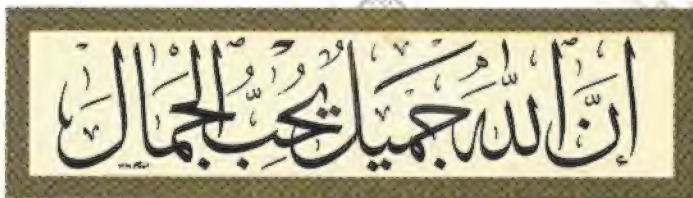 إِنَّ اللَّهَ جَمِيلٌ يُحِبُّ الْجَمَالَ